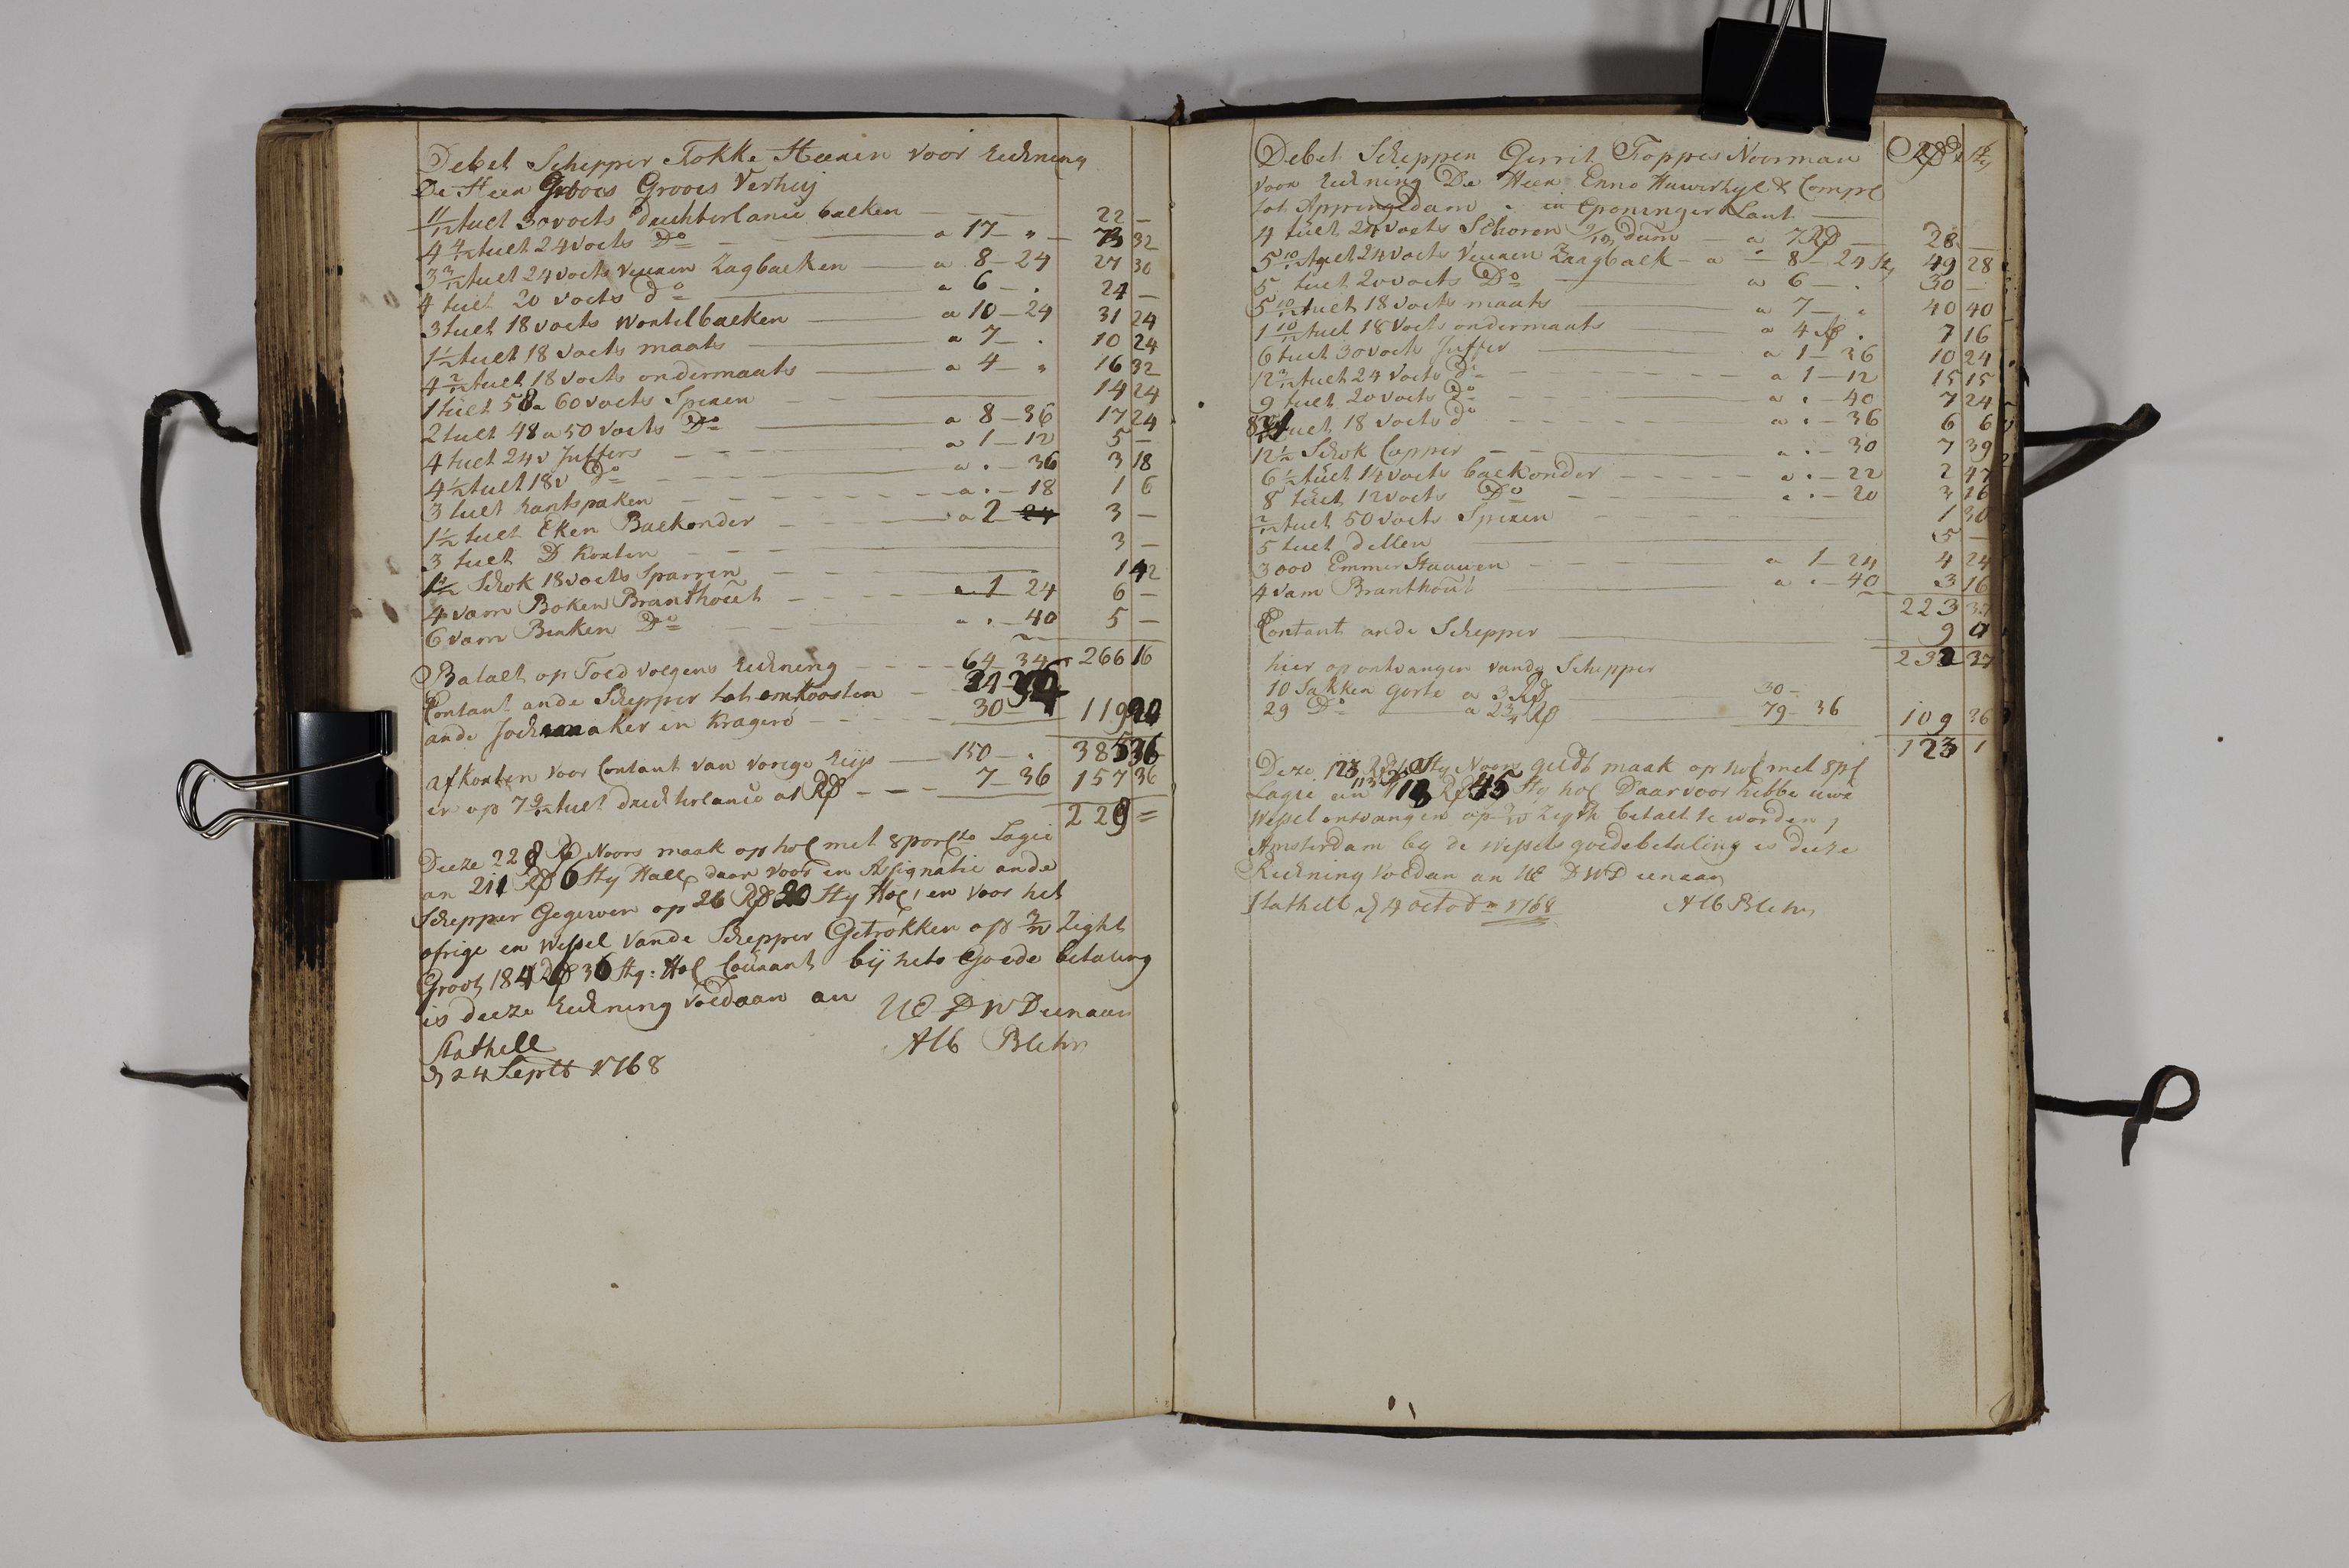 Debet Schipper Fokke Heeren voor Rekning
De Heer Groves Verhuy
11/12 tult 30 voets druchterlanie balken — 22 —
4 4/12 tult 24 voets Do — a 17 — " — 73 32
3 3/12 tult 24 voets veuren Zagbalken — a 8 — 24 27 30
4 tult 20 voets do — a 6 — . 24 —
3 tult 18 voets Wortelbalken — a 10 — 24 31 24
1 1/2 tult 18 voets maats — a 7 — . 10 24
4 2/12 tult 18 voets ondermaats — a 4 — " 16 32
1 tult 58 a 60 voets Spiren — 14 24
2 tult 48 a 50 voets Do — a 8 — 36 17 24
4 tult 24 v Juffers — a 1 — 12 5 —
4 1/2 tult 18 v Do — a . — 36 3 18
3 tult hantspaken — a . — 18 1 6
1 1/2 tult Eken Balkonder — a 2 3 —
3 tult D korten — 3 —
1 1/2 Schok 18 voets Sparren — 1 42
4 vam Boken Branthout — a 1 24 6 —
6 vam Berken Do — a . — 40 5 —
Batalt op Toed volgens Rekning — 64 — 34 266 16
Contant ande Schipper tot onkoosten —
ande Jockmaker in Kragerö — 30 — 119 20
afkorten voor Contant van vorige Reijs — 150 — . 385 36
en op 7 9/12 tult druchterlanie at Rd — 7 — 36 157 36
228 =
Dieze 228 Rd Noors maak op hol met 8 porcto Lagie
an 211 Rd 6 Sty Holl daar voor en Assignatie ande
Schipper Gegeven op 26 Rd 20 Sty Hol, en voor het
ofrige en Wessel vande Schipper Getrokken op Zight
Groot 184 Rd 36 Sty: Hol Courant bij hets Goede betaling
is dieze Rekning voldaan an UE DW Dienaar
Stathell Alb Blehr
d 24 Septb 1768
Debet Schipper Gerrit Foppes Noorman Rd Sty
voor Rekning De Heer Enno Huwerhyl & Compe
tot Appingedam in Groninger Lant —
4 tult 24 voets Schoren 9/10 dum — a 7 Rd — 28 —
5 10/12 tult 24 voets Veuren Zaagbalk — a — 8 — 24 Sty 49 28
5 tult 20 voets Do — a 6 — . 30 —
5 10/12 tult 18 voets maats — a 7 — " 40 40
1 10/12 tult 18 voets ondermaats — a 4 Rd . 7 16
6 tult 30 voets Juffer — a 1 — 36 10 24
12 3/12 tult 24 voets do — a 1 — 12 15 15
9 tult 20 voets do — a . — 40 7 24
tult 18 voets do — a . — 36 6 6
12 1/2 Schok Capper — a . — 30 7 39
6 1/2 tult 14 voets balkonder — a . — 22 2 47
8 tult 12 voets Do — a . — 20 3 16
2/12 tult 50 voets Spiren — 1 30
5 tult dellen — 5 —
3000 Emmer Staawen — a 1 — 24 4 24
4 vam Branthout — a . — 40 3 16
223 37
Contant ande Schipper — 9 0
232 37
hier op ontvangen vande Schipper
10 Sakken Gorte a 3 Rd — 30 —
29 Do — a 2 3/4 Rd — 79 — 36 109 36
123 1
Deze 123 Rd Sty Noors geldt maak op hol met 8 pC
Lagie an 113 Rd 45 Sty hol Daar voor hebbe uwe
Wessel ontvangen op Zigth betalt te worden,
Amsterdam by de Wessels goedebetaling is dieze
Rekning voldan an UE DWDienaar
Stathell d 4 octobr 1768 Alb Blehr